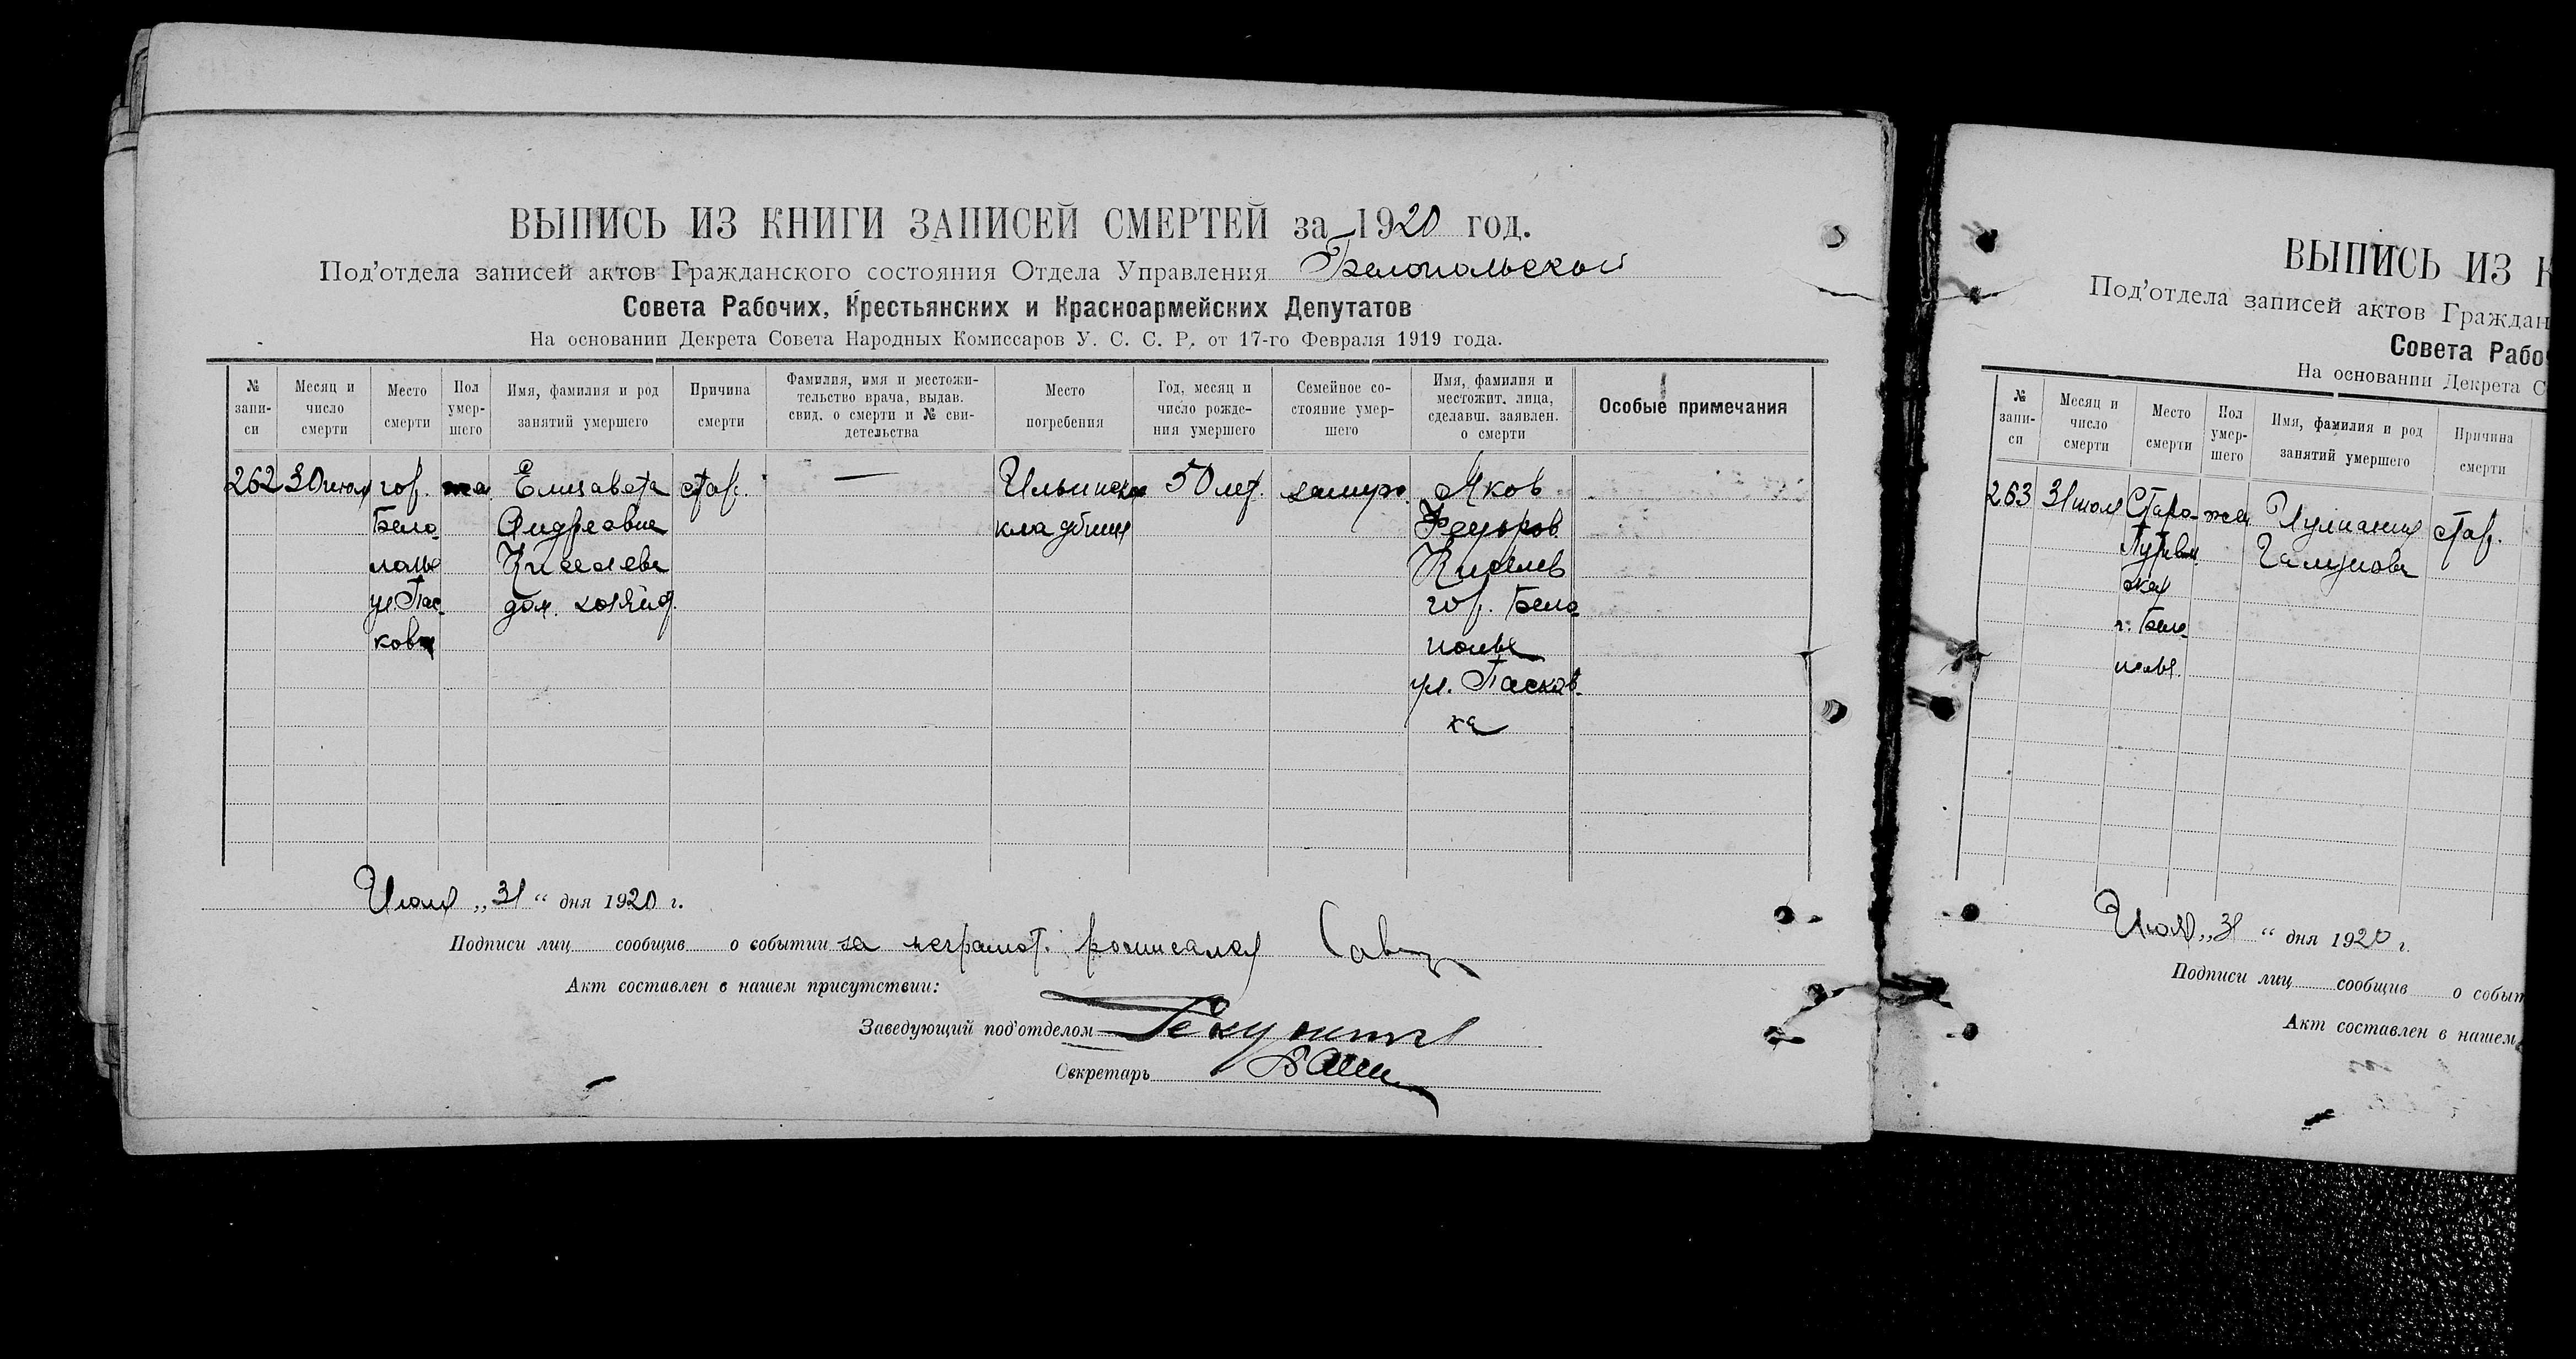 ВЫПИСЬ ИЗ КНИГИ ЗАПИСЕЙ СМЕРТЕЙ за 1920 год.
Под'отдела записей актов Гражданского состояния Отдела Управления Белопольской
Совета Рабочих, Крестьянских и Красноармейских Депутатов
На основании Декрета Совета Народных Комиссаров У. С. С. Р. от 17-го Февраля 1919 года.
№ запи-си
Месяц и число смерти
Место смерти
Пол умер-шего
Имя, фамилия и род занятий умершего
Причина смерти
Фамилия, имя и местожи-тельство врача, выдав. свид. о смерти и № сви-детельства
Место погребения
Год, месяц и число рожде-ния умершего
Семейное со-стояние умер-шего
Имя, фамилия и местожит. лица, сделавш. заявлен. о смерти
Особые примечания
262
30 июля
гор.
Бело
полье
ул. Пас
ковка
жен
Елизавета
Андреевна
Киселева
дом. хозяйст.
стар.
—
Ильинское
кладбище
50 лет.
замуж.
Яков
Федоров
Киселев
гор. Бело
полье
ул. Пасков
ка
Июля „31“ дня 1920 г.
Подписи лиц сообщив о событии за неграмот. росписался
Акт составлен в нашем присутствии:
Заведующий под'отделом
Секретарь
ВЫПИСЬ ИЗ К
Под'отдела записей актов Граждан
Совета Рабо
На основании Декрета С
№ запи-си
Месяц и число смерти
Место смерти
Пол умер-шего
Имя, фамилия и род занятий умершего
Причина смерти
263
31 июля
Старо-
Путивль
ская
г. Бело
полья
жен
стар.
Июля „31“ дня 1920 г.
Подписи лиц сообщив о событ
Акт составлен в нашем